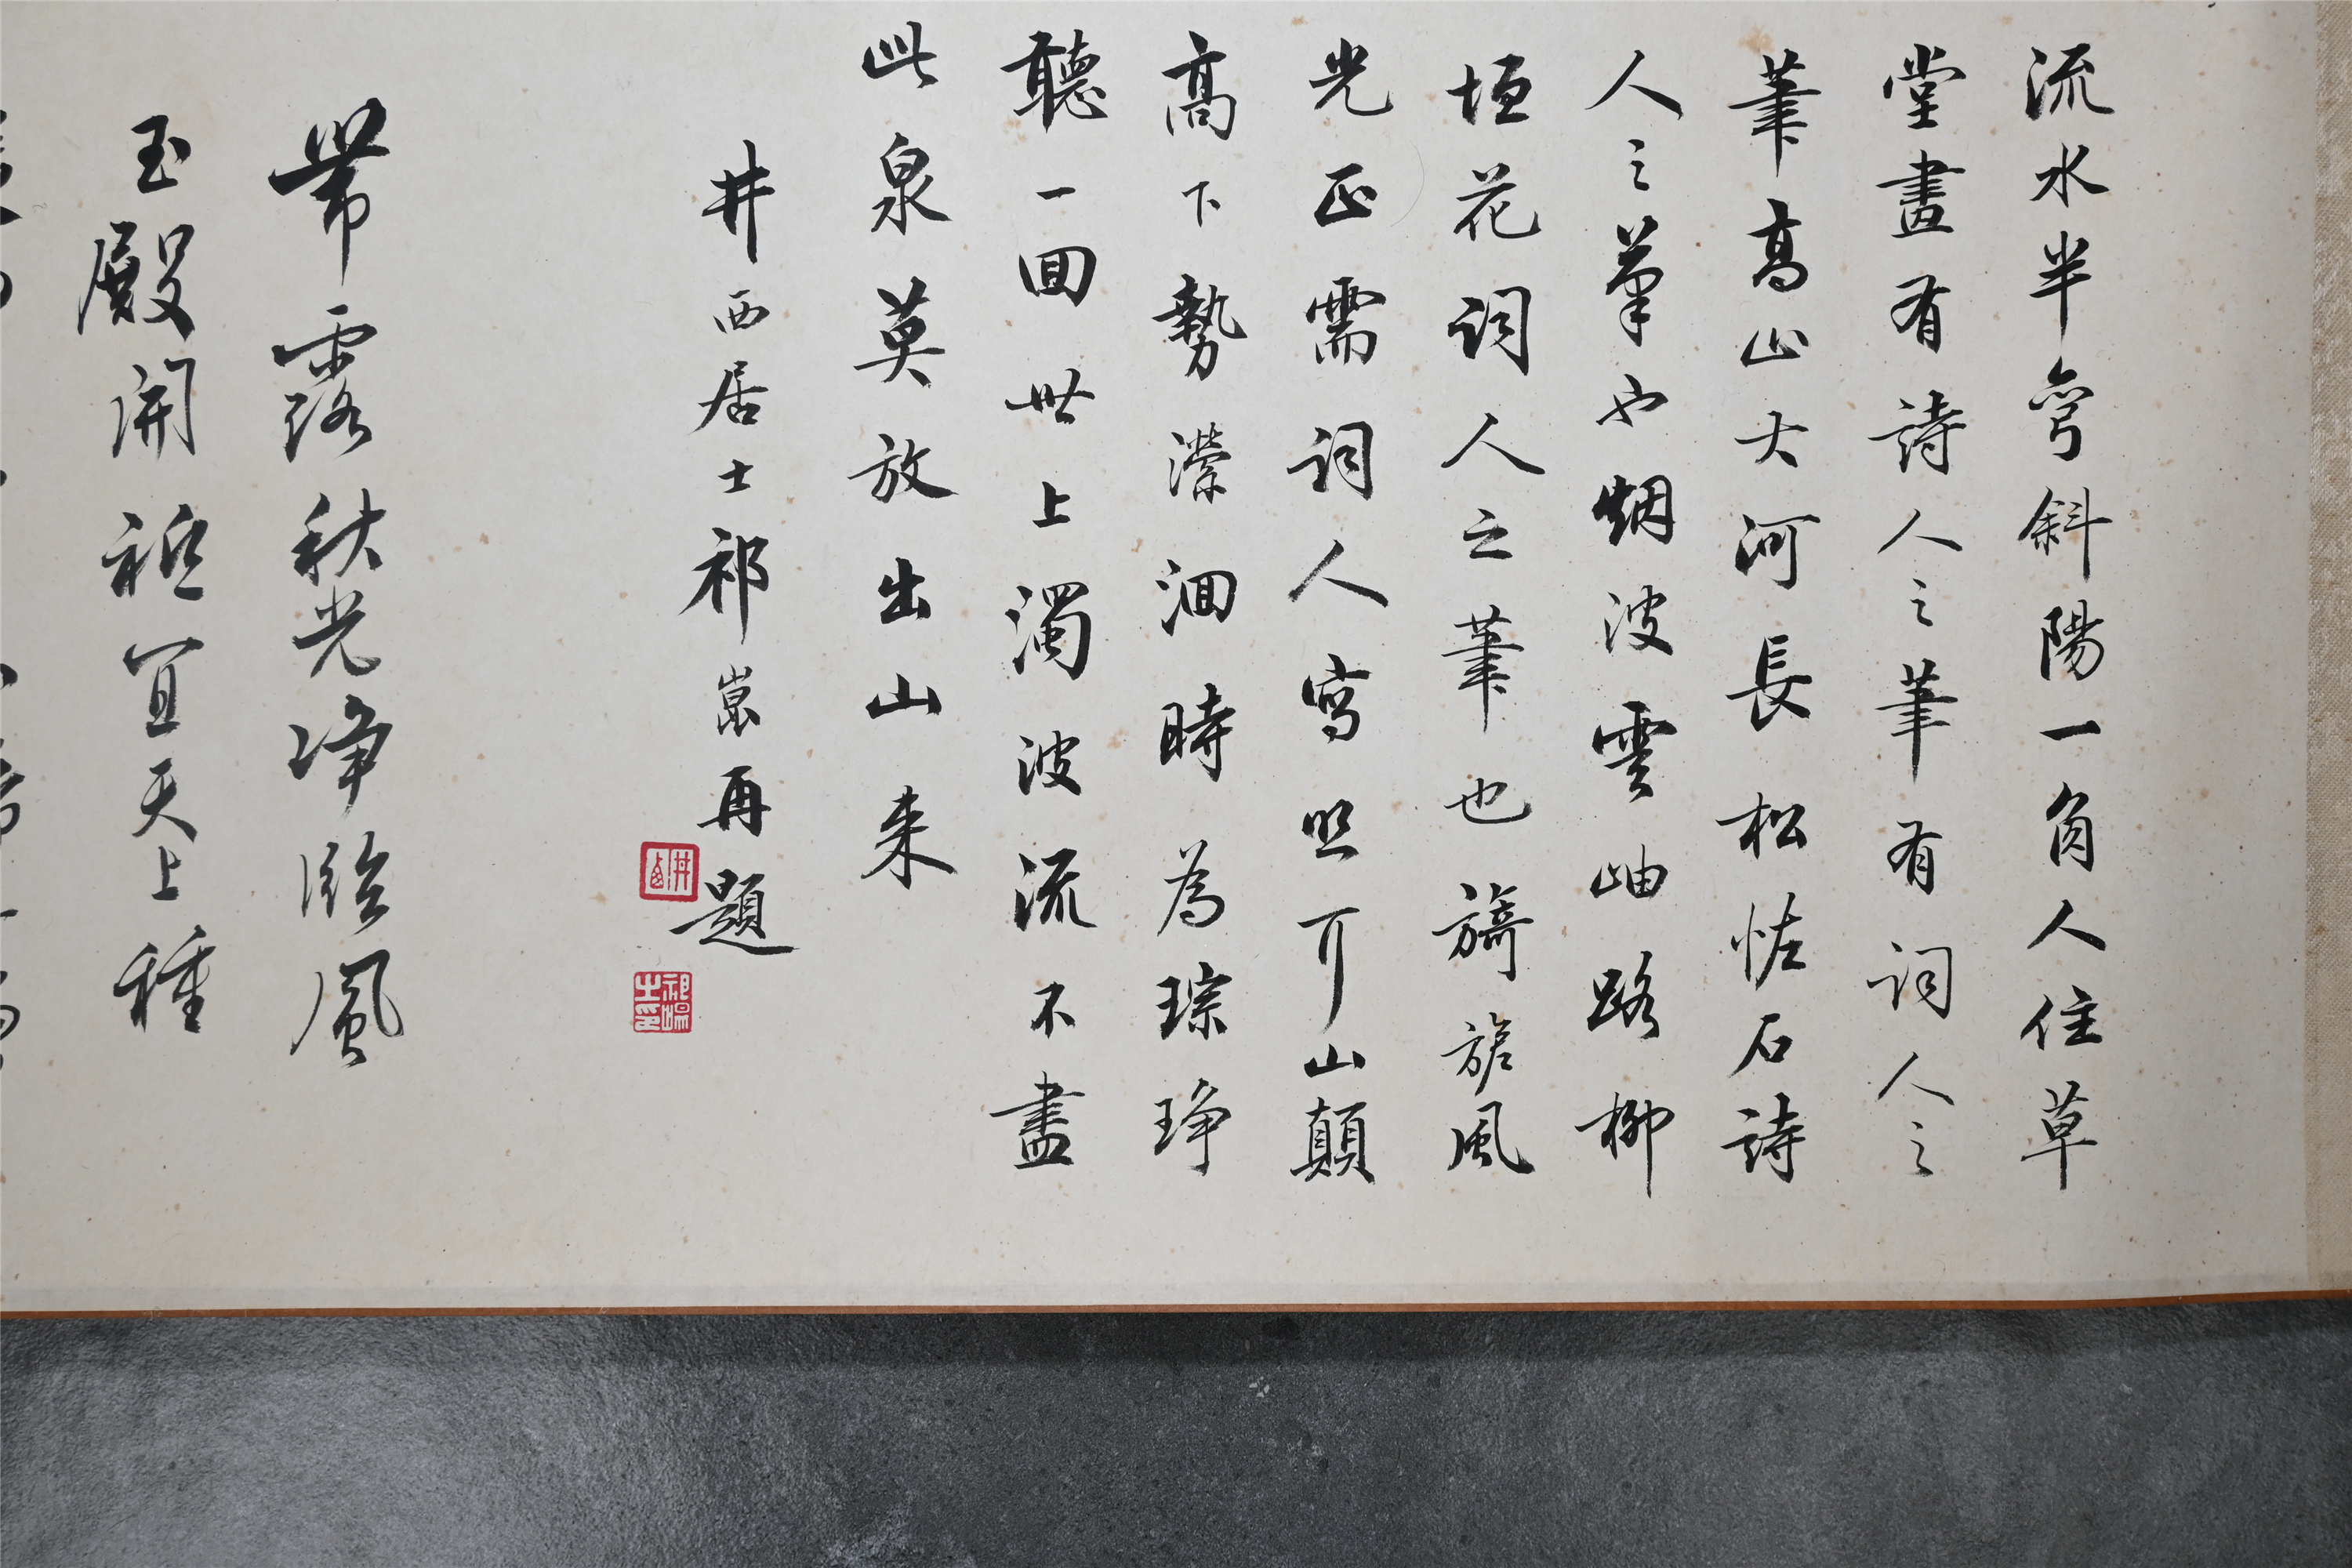 流水半弯斜陽一角人住草
堂畫有詩人之筆有詞人之
筆高山大河長松怪石詩
人之筆也烟波雲岫路柳
垣花詞人之筆也旖旎風
光正需詞人寫照耳山顛
高下勢瀠洄時為琮琤
聽一回世上濁波流不盡
此泉莫放出山来
井西居士祁崑再題
井西
祁崑之印
帶露秋光净臨風
玉殿開祗宜天上種